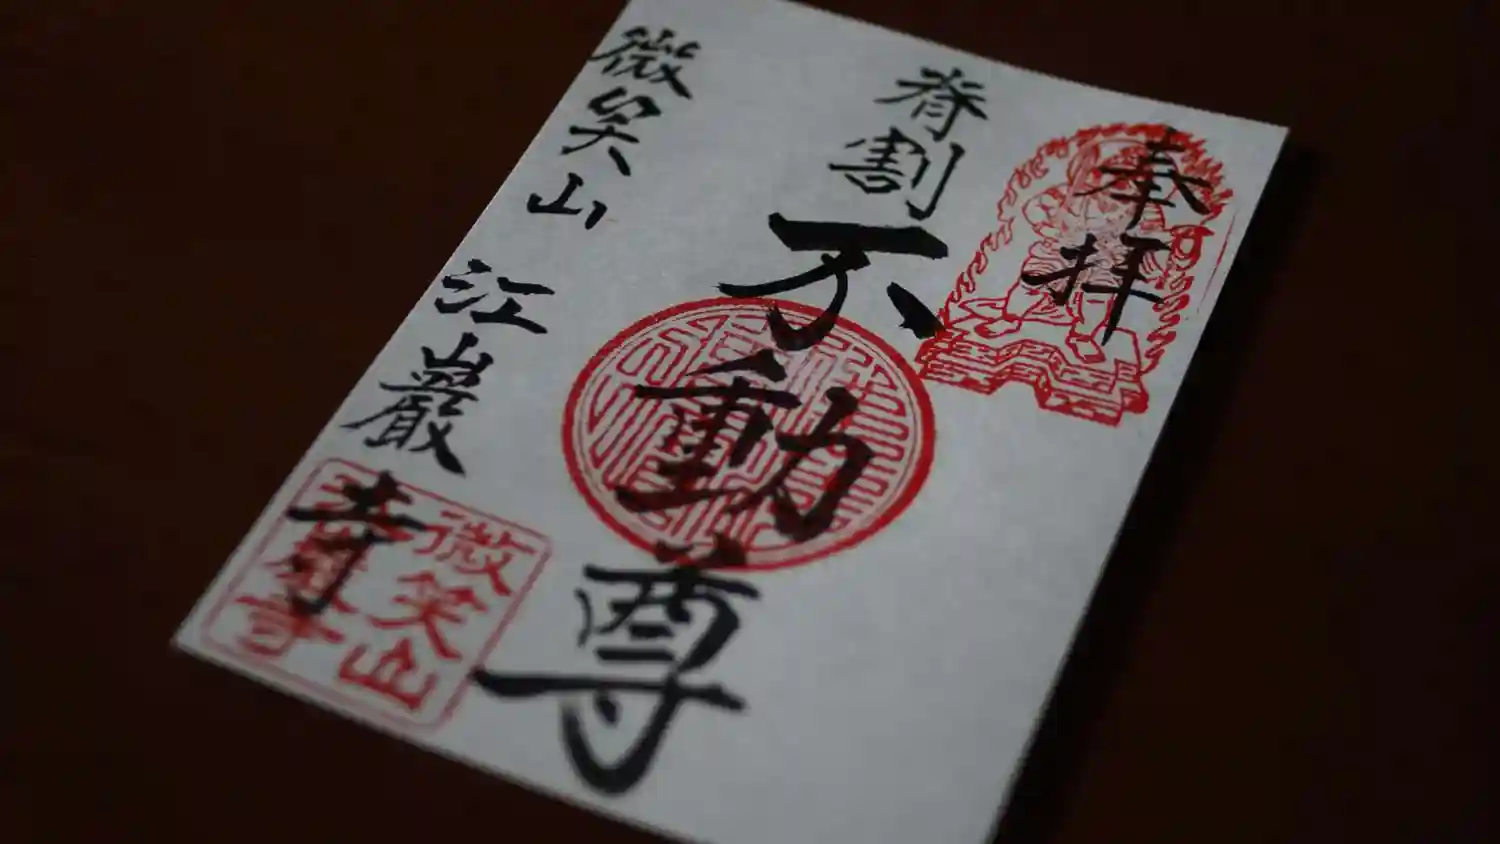 奉拝
脊割
不動尊
微笑山 江巖寺
微笑山
江巖寺